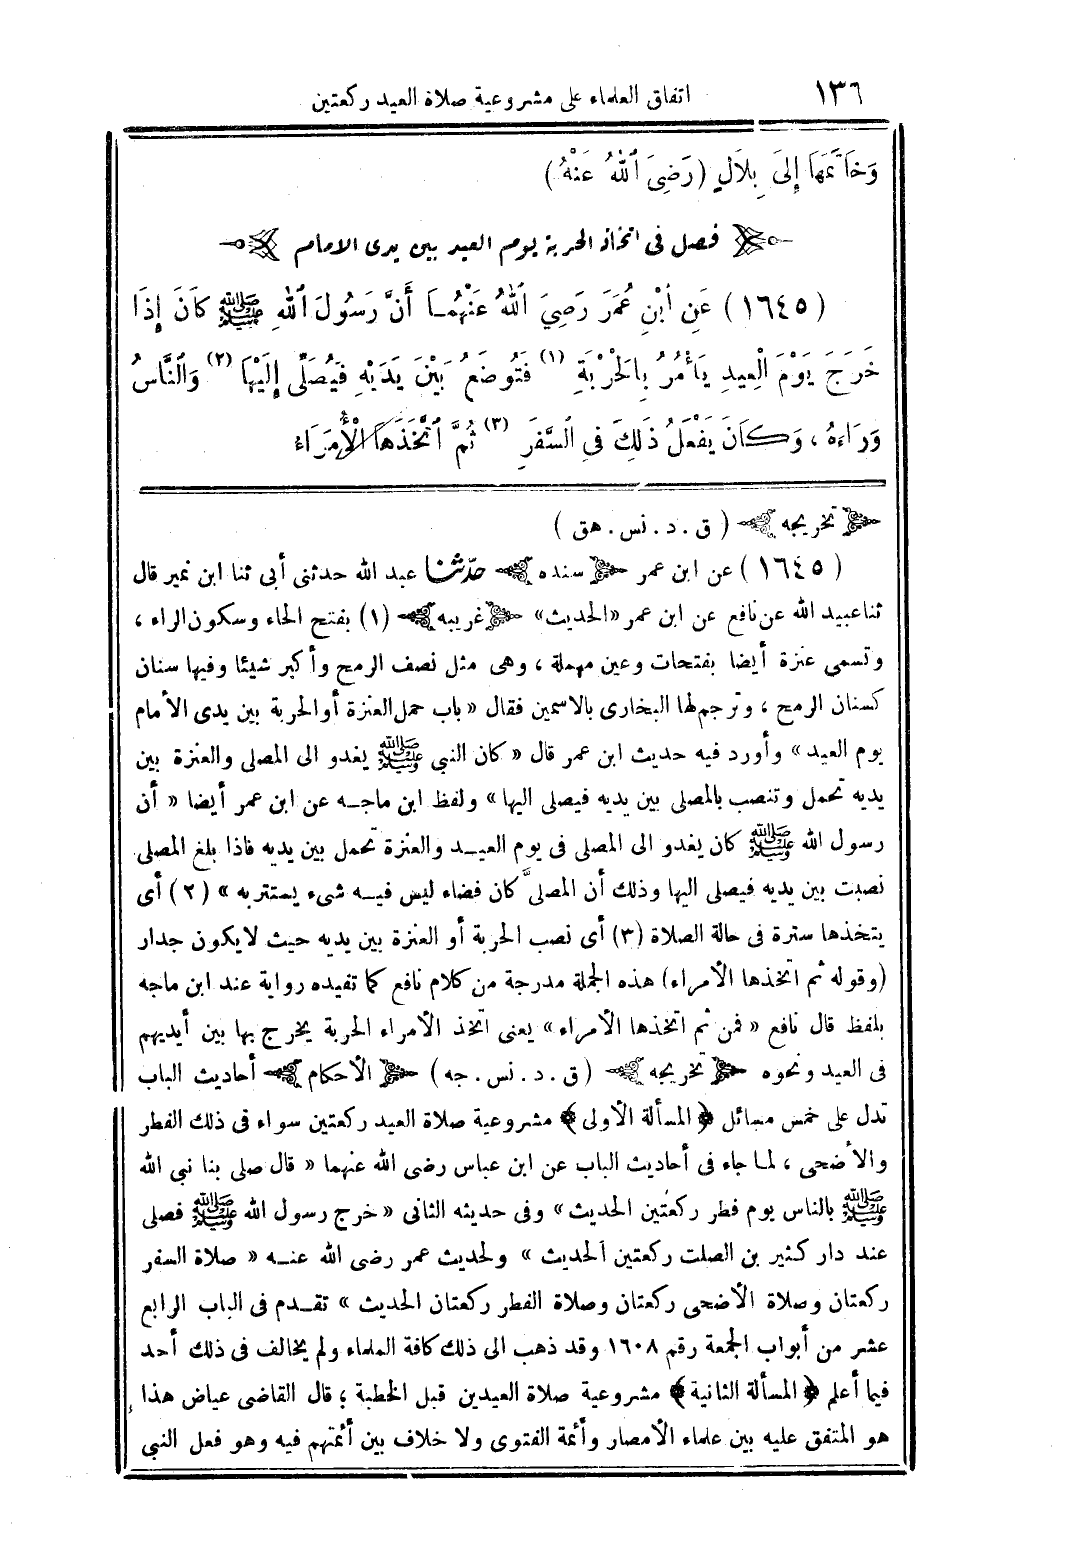 ١٣٦ اتفاق العلماء على مشروعية صلاة العيد ركعتين
وَخَاتَمَهَا إِلَى بِلَالٍ (رَضِيَ ٱللهُ عَنْهُ)
فصل فى اتخاذ الحربة يوم العيد بين يدى الامام
(١٦٤٥) عَنِ ٱبْنِ عُمَرَ رَضِيَ ٱللهُ عَنْهُمَا أَنَّ رَسُولَ ٱللهِ ﷺ كَانَ إِذَا
خَرَجَ يَوْمَ الْعِيدِ يَأْمُرُ بِالْحَرْبَةِ (١) فَتُوضَعُ بَيْنَ يَدَيْهِ فَيُصَلِّى إِلَيْهَا (٢) وَٱلنَّاسُ
وَرَاءَهُ ، وَكَانَ يَفْعَلُ ذَلِكَ فِي ٱلسَّفَرِ (٣) ثُمَّ ٱتَّخَذَهَا الْأُمَرَاءُ
تخريجه ( ق . د . نس . هق )
(١٦٤٥) عن ابن عمر سنده حدثنا عبد الله حدثنى أبى ثنا ابن نمير قال
ثنا عبيد الله عن نافع عن ابن عمر «الحديث» غريبه (١) بفتح الحاء وسكون الراء ،
وتسمى عنزة أيضا بفتحات وعين مهملة ، وهى مثل نصف الرمح وأكبر شيئا وفيها سنان
كسنان الرمح ، وترجم لها البخارى بالاسمين فقال « باب حمل العنزة أو الحربة بين يدى الأمام
يوم العيد » وأورد فيه حديث ابن عمر قال « كان النبى ﷺ يغدو الى المصلى والعنزة بين
يديه تحمل وتنصب بالمصلى بين يديه فيصلى اليها » ولفظ ابن ماجه عن ابن عمر أيضا « أن
رسول الله ﷺ كان يغدو الى المصلى فى يوم العيد والعنزة تحمل بين يديه فاذا بلغ المصلى
نصبت بين يديه فيصلى اليها وذلك أن المصلى كان فضاء ليس فيه شىء يستتر به » (٢) أى
يتخذها سترة فى حالة الصلاة (٣) أى نصب الحربة أو العنزة بين يديه حيث لا يكون جدار
(وقوله ثم اتخذها الأمراء) هذه الجملة مدرجة من كلام نافع كما تفيده رواية عند ابن ماجه
بلفظ قال نافع « فمن ثم اتخذها الأمراء » يعنى اتخذ الأمراء الحربة يخرج بها بين أيديهم
فى العيد ونحوه تخريجه (ق . د . نس . جه) الأحكام أحاديث الباب
تدل على خمس مسائل ﴿ المسألة الأولى ﴾ مشروعية صلاة العيد ركعتين سواء فى ذلك الفطر
والأضحى ، لما جاء فى أحاديث الباب عن ابن عباس رضى الله عنهما « قال صلى بنا نبى الله
ﷺ بالناس يوم فطر ركعتين الحديث » وفى حديثه الثانى « خرج رسول الله ﷺ فصلى
عند دار كثير بن الصلت ركعتين الحديث » ولحديث عمر رضى الله عنه « صلاة السفر
ركعتان وصلاة الأضحى ركعتان وصلاة الفطر ركعتان الحديث » تقدم فى الباب الرابع
عشر من أبواب الجمعة رقم ١٦٠٨ وقد ذهب الى ذلك كافة العلماء ولم يخالف فى ذلك أحد
فيما أعلم ﴿ المسألة الثانية ﴾ مشروعية صلاة العيدين قبل الخطبة ؛ قال القاضى عياض هذا
هو المتفق عليه بين علماء الأمصار وأئمة الفتوى ولا خلاف بين أئمتهم فيه وهو فعل النبى